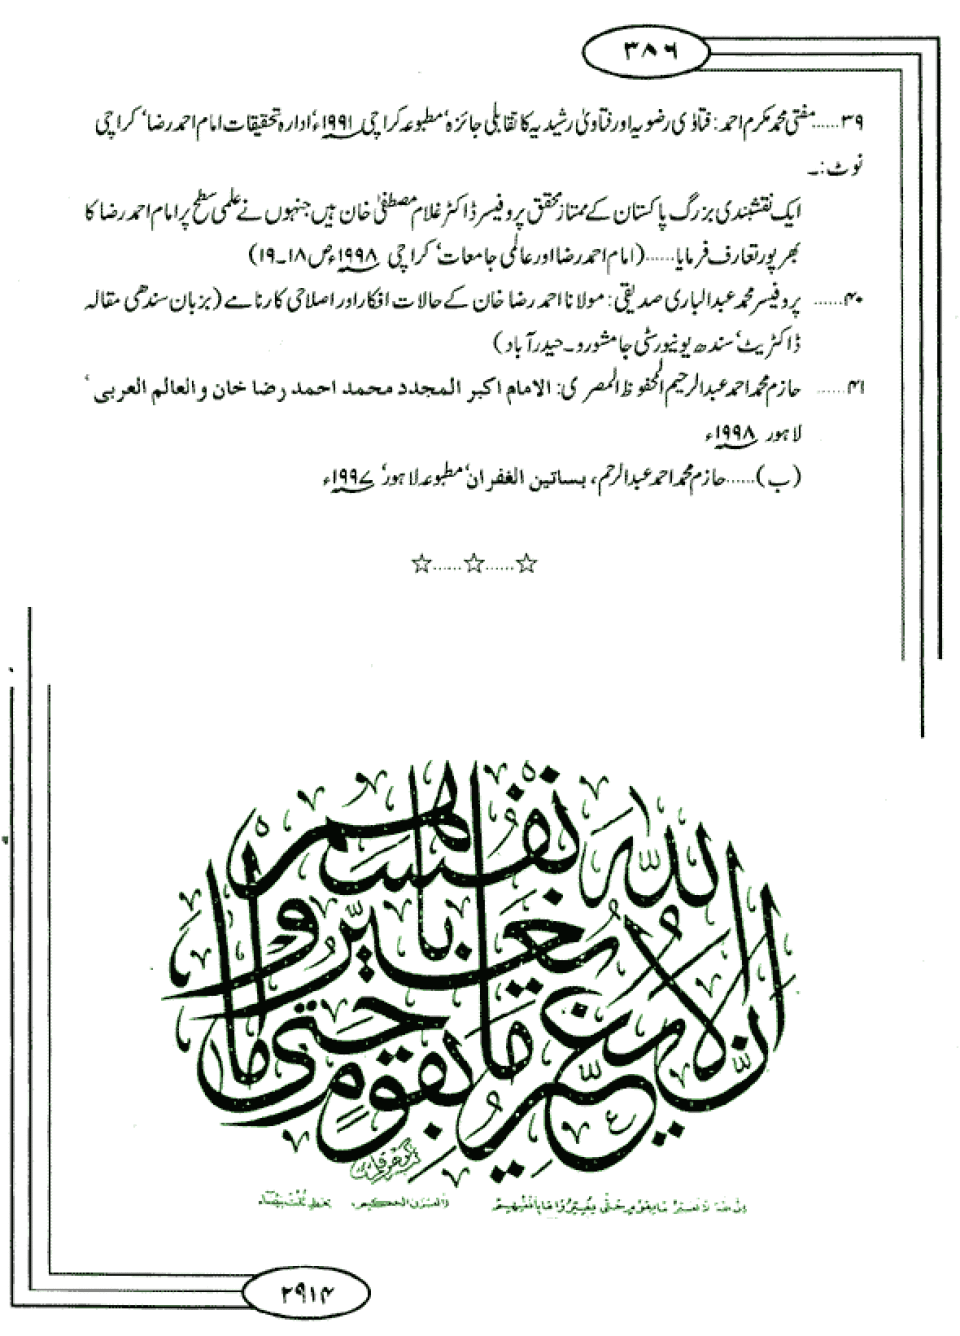 ۳۸۶
۳۹......مفتی محمد مکرم احمد: فتاوٰی رضویہ اور فتاویٰ رشیدیہ کا تقابلی جائزہ‘ مطبوعہ کراچی ۱۹۹۱ء‘ ادارہ تحقیقات امام احمد رضا‘ کراچی
نوٹ:۔
ایک نقشبندی بزرگ پاکستان کے ممتاز محقق پروفیسر ڈاکٹر غلام مصطفیٰ خان ہیں جنہوں نے علمی سطح پر امام احمد رضا کا
بھرپور تعارف فرمایا......(امام احمد رضا اور عالمی جامعات‘ کراچی ۱۹۹۸ء ص ۱۸۔۱۹)
۴۰...... پروفیسر محمد عبدالباری صدیقی: مولانا احمد رضا خان کے حالات افکار اور اصلاحی کارنامے (بزبان سندھی مقالہ
ڈاکٹریٹ‘ سندھ یونیورسٹی جامشورو۔ حیدر آباد)
۴۱...... حازم محمد احمد عبدالرحیم المحفوظ المصری: الامام اکبر المجدد محمد احمد رضا خان والعالم العربی‘
لاہور ۱۹۹۸ء
(ب)......حازم محمد احمد عبدالرحم، بساتین الغفران‘ مطبوعہ لاہور‘ ۱۹۹۷ء
☆......☆......☆
ان الله لا يغير ما بقوم حتى يغيروا ما بانفسهم
۲۹۱۴